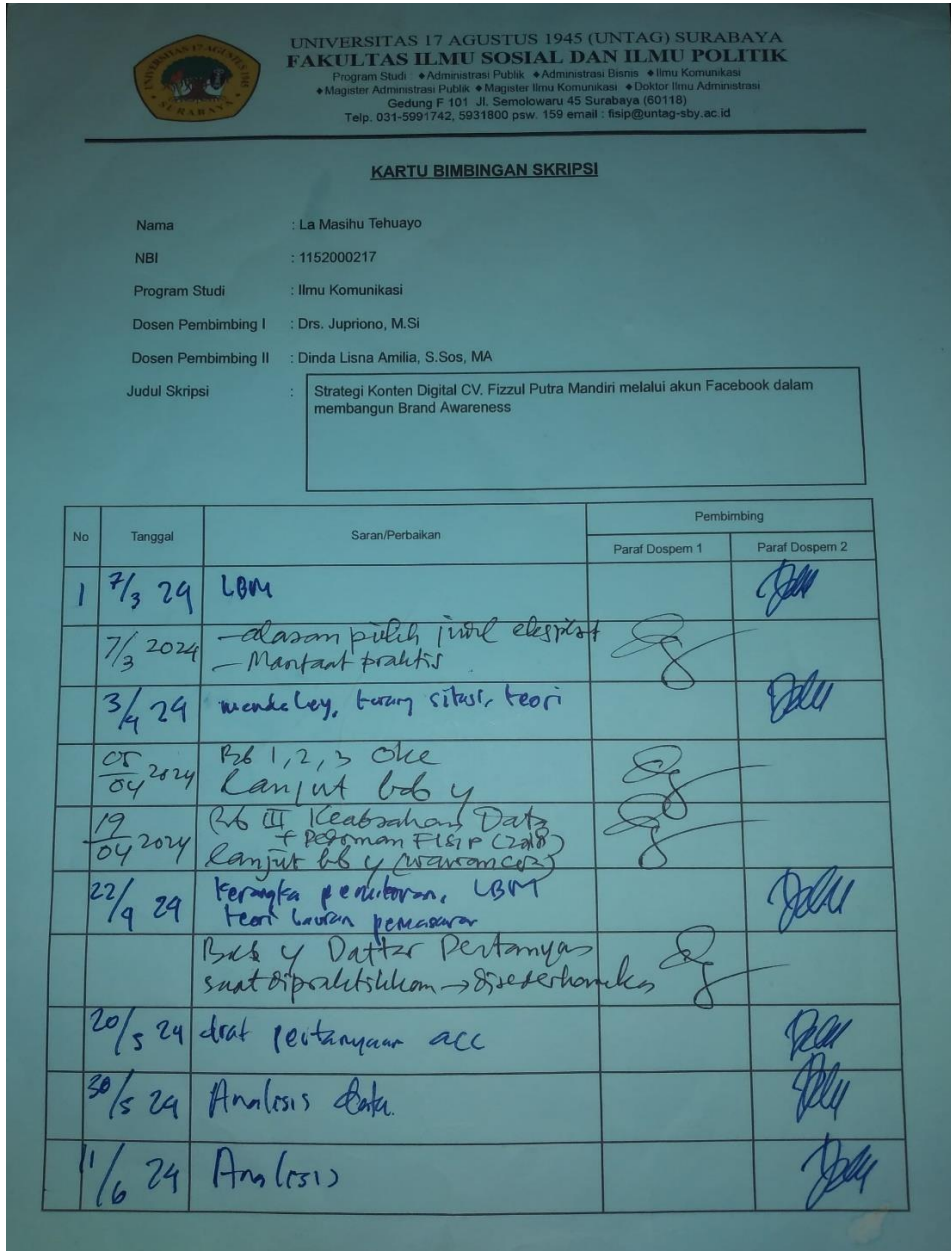 UNIVERSITAS 17 AGUSTUS 1945 (UNTAG) SURABAYA
FAKULTAS ILMU SOSIAL DAN ILMU POLITIK
Program Studi : ◆Administrasi Publik ◆Administrasi Bisnis ◆Ilmu Komunikasi
◆Magister Administrasi Publik ◆Magister Ilmu Komunikasi ◆Doktor Ilmu Administrasi
Gedung F 101 Jl. Semolowaru 45 Surabaya (60118)
Telp. 031-5991742, 5931800 psw. 159 email : fisip@untag-sby.ac.id
UNIVERSITAS 17 AGUSTUS 1945
SURABAYA
KARTU BIMBINGAN SKRIPSI
Nama : La Masihu Tehuayo
NBI : 1152000217
Program Studi : Ilmu Komunikasi
Dosen Pembimbing I : Drs. Jupriono, M.Si
Dosen Pembimbing II : Dinda Lisna Amilia, S.Sos, MA
Judul Skripsi : Strategi Konten Digital CV. Fizzul Putra Mandiri melalui akun Facebook dalam
membangun Brand Awareness
No Tanggal Saran/Perbaikan Pembimbing
Paraf Dospem 1 Paraf Dospem 2
1 7/3 24 LBM
7/3 2024 - alasan pilih judul
- Manfaat praktis
3/4 24 mendeley, sitasi, teori
05/04 2024 Bab 1, 2, 3 Oke
Lanjut bab 4
19/04 2024 Bab III Keabsahan Data
+ Pedoman FISIP (2018)
lanjut bab 4 (wawancara)
22/4 24 kerangka pemikiran, LBM
teori bauran pemasaran
Bab 4 Daftar Pertanyaan
saat dipraktikkan → disederhanakan
20/5 24 draf pertanyaan acc
30/5 24 Analisis data.
11/6 24 Analisis